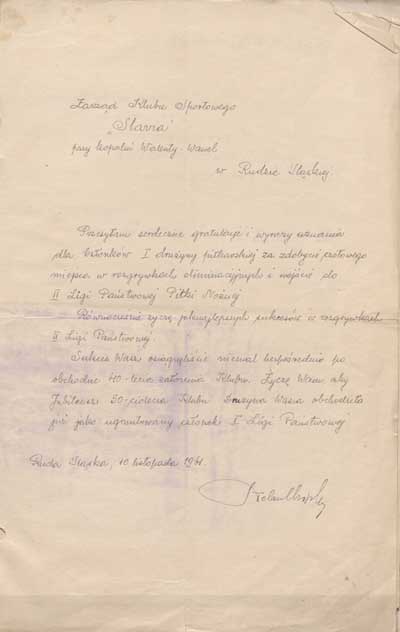 Zarząd Klubu Sportowego
„Slavia”
przy kopalni Walenty-Wawel
w Rudzie Śląskiej.
Przesyłam serdeczne gratulacje i wyrazy uznania
dla Członków I drużyny piłkarskiej za zdobycie czołowego
miejsca w rozgrywkach eliminacyjnych i wejście do
II Ligi Państwowej Piłki Nożnej
Równocześnie życzę jaknajlepszych sukcesów w rozgrywkach
II Ligi Państwowej.
Sukces Wasz osiągnęliście niemal bezpośrednio po
obchodzie 40-lecia założenia Klubu. Życzę Wam aby
Jubileusz 50-ciolecia Klubu Drużyna Wasza obchodziła
już jako ugruntowany członek I Ligi Państwowej
Ruda Śląska, 10 listopada 1961.